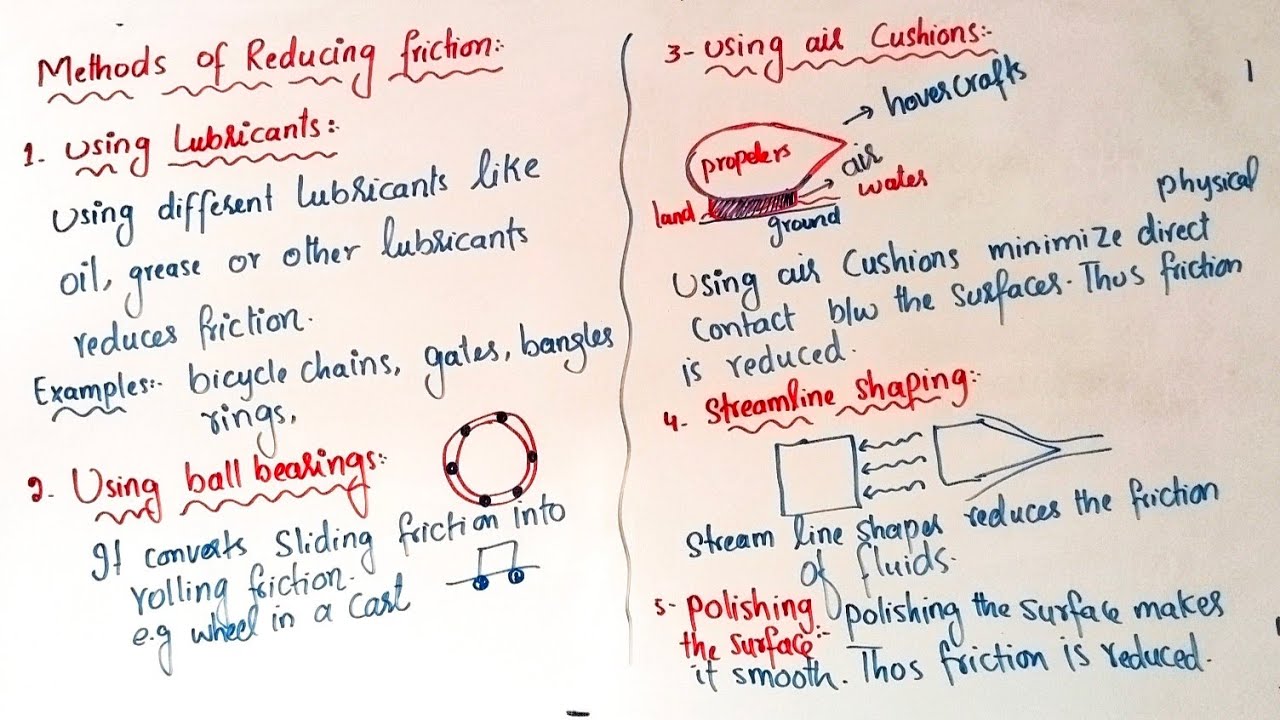 Methods of Reducing friction:-
1- Using Lubricants:-
Using different lubricants like
oil, grease or other lubricants
reduces friction.
Examples:- bicycle chains, gates, bangles
rings,
2- Using ball bearings:-
It converts Sliding friction into
rolling friction.
e.g wheel in a cart
3- Using air Cushions:-
hovercrafts
propelers
air
water
land
ground
physical
Using air Cushions minimize direct
contact b/w the surfaces. Thus friction
is reduced.
4- Streamline shaping:-
Stream line shapes reduces the friction
of fluids.
5- polishing polishing the surface makes
the surface:-
it smooth. Thos friction is reduced.
1